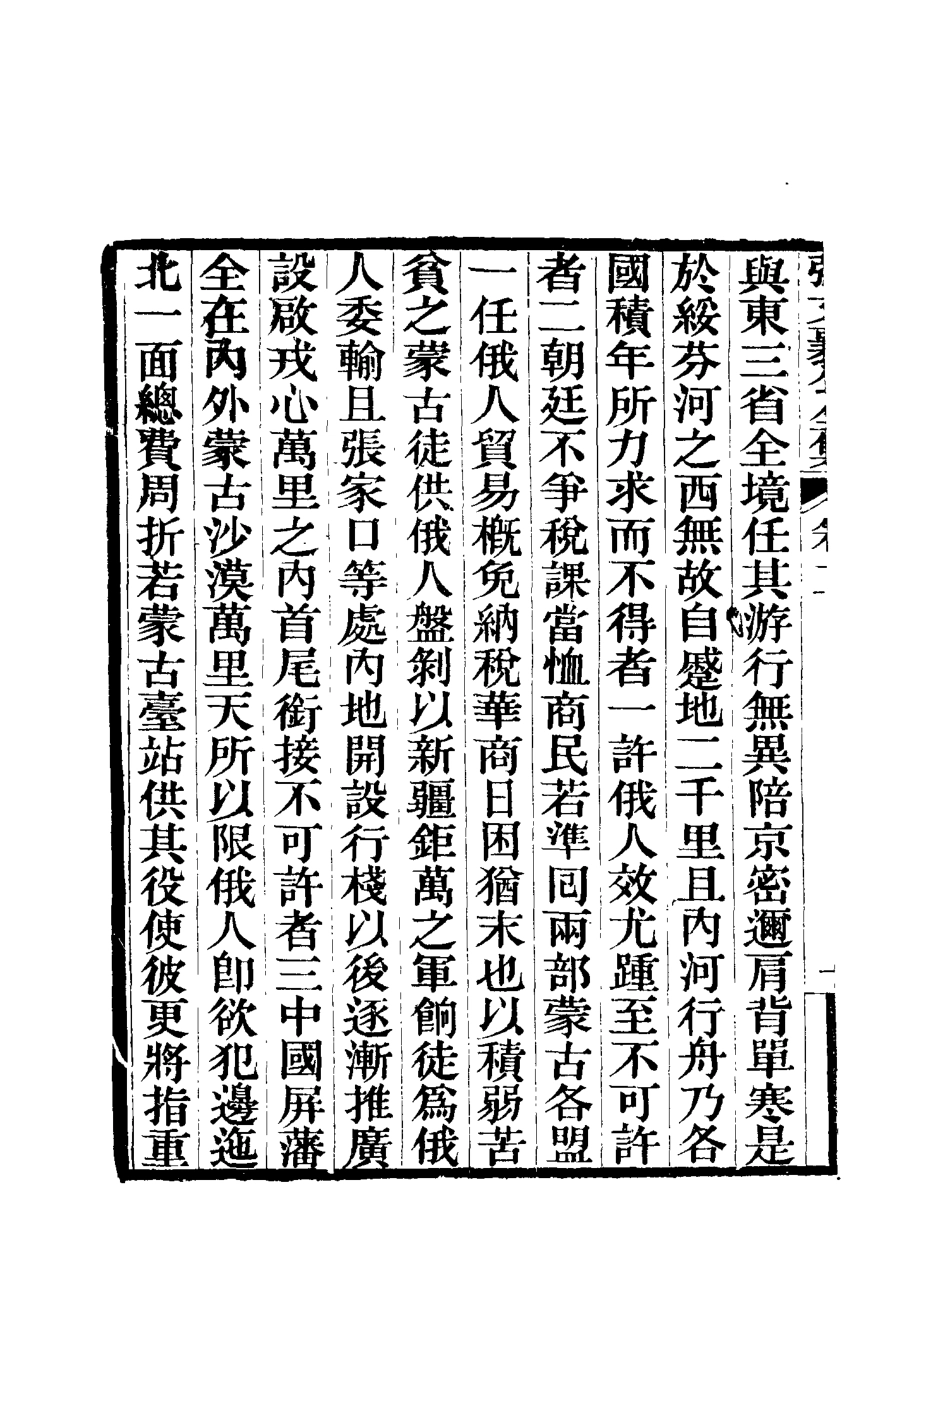 與東三省全境任其游行無異陪京密邇肩背單寒是
於綏芬河之西無故自蹙地二千里且內河行舟乃各
國積年所力求而不得者一許俄人效尤踵至不可許
者二朝廷不爭稅課當恤商民若準囘兩部蒙古各盟
一任俄人貿易槪免納稅華商日困猶末也以積弱苦
貧之蒙古徒供俄人盤剝以新疆鉅萬之軍餉徒爲俄
人委輸且張家口等處內地開設行棧以後逐漸推廣
設啟戎心萬里之內首尾銜接不可許者三中國屏藩
全在內外蒙古沙漠萬里天所以限俄人卽欲犯邊迤
北一面總費周折若蒙古臺站供其役使彼更將指重